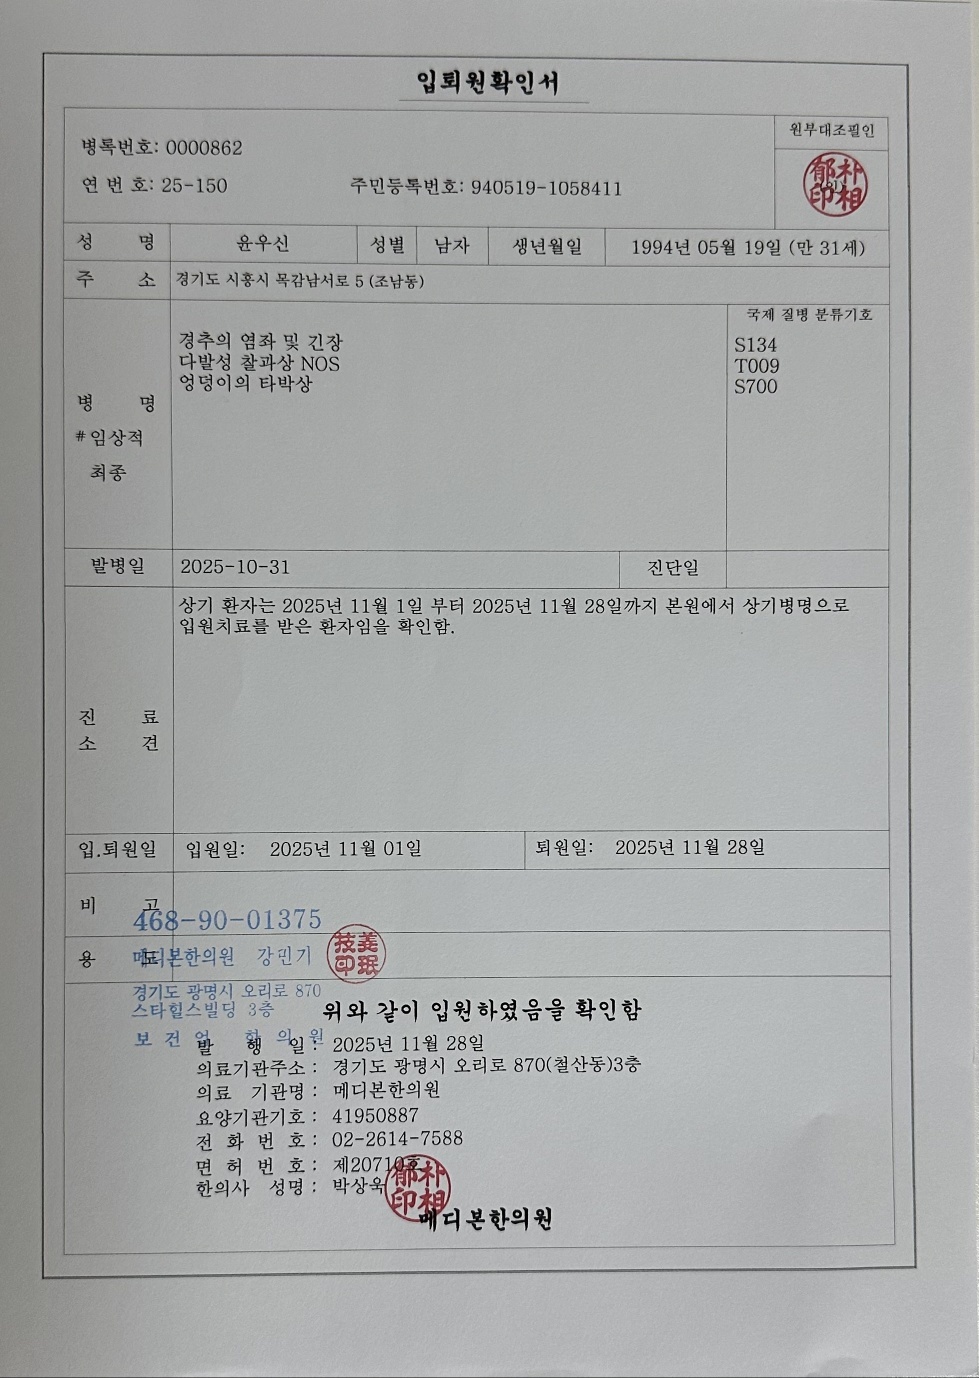 입퇴원확인서
병록번호: 0000862
원부대조필인
연 번 호: 25-150 주민등록번호: 940519-1058411
(인)
朴相郁印
성 명 윤우신 성별 남자 생년월일 1994년 05월 19일 (만 31세)
주 소 경기도 시흥시 목감남서로 5 (조남동)
국제 질병 분류기호
경추의 염좌 및 긴장 S134
다발성 찰과상 NOS T009
엉덩이의 타박상 S700
병 명
#임상적
최종
발병일 2025-10-31 진단일
상기 환자는 2025년 11월 1일 부터 2025년 11월 28일까지 본원에서 상기병명으로
입원치료를 받은 환자임을 확인함.
진 료
소 견
입.퇴원일 입원일: 2025년 11월 01일 퇴원일: 2025년 11월 28일
비 고
468-90-01375
용 도
메디본한의원 강민기
경기도 광명시 오리로 870
스타힐스빌딩 3층
위와 같이 입원하였음을 확인함
보건업 한의원
발 행 일 : 2025년 11월 28일
의료기관주소 : 경기도 광명시 오리로 870(철산동)3층
의료 기관명 : 메디본한의원
요양기관기호 : 41950887
전 화 번 호 : 02-2614-7588
면 허 번 호 : 제20710호
한의사 성명 : 박상욱
朴相郁印
메디본한의원